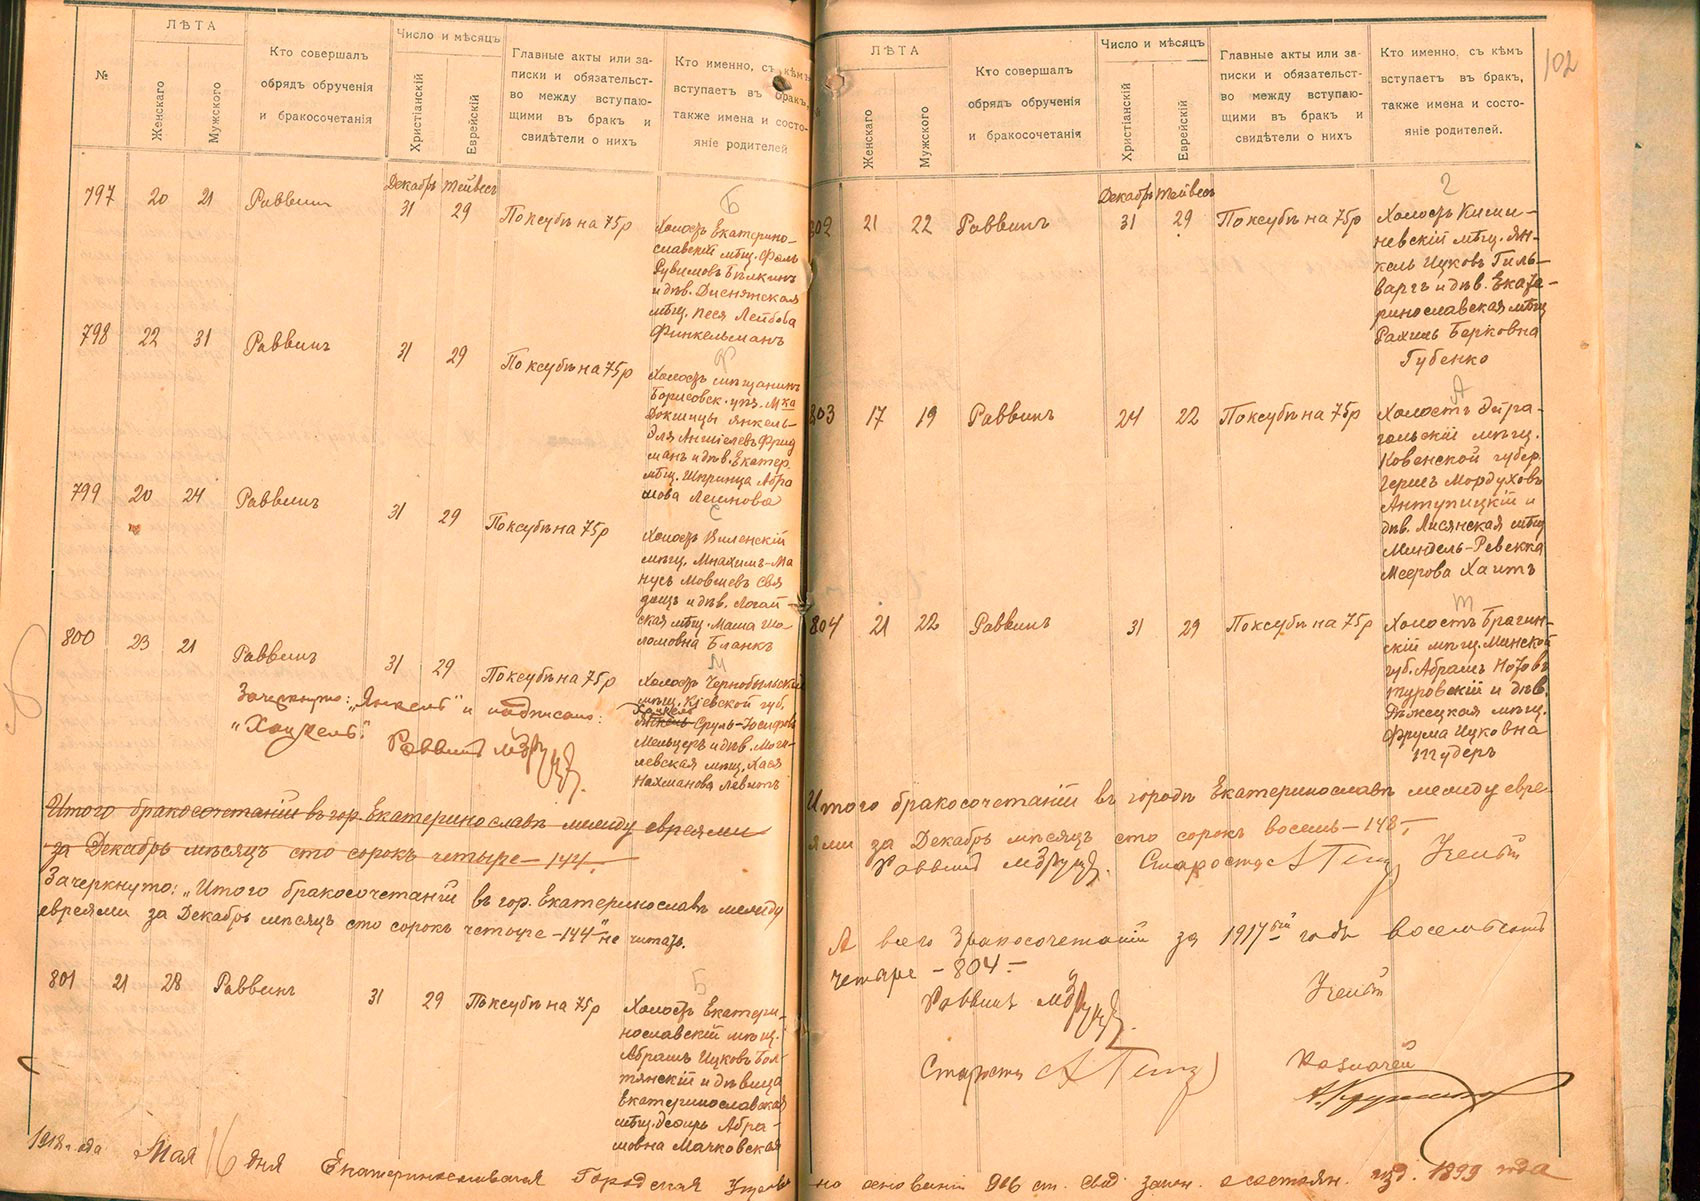 №
ЛѢТА
Женскаго
Мужского
Кто совершалъ
обрядъ обрученія
и бракосочетанія
Число и мѣсяцъ
Христіанскій
Еврейскій
Главные акты или за-
писки и обязательст-
во между вступаю-
щими въ бракъ и
свидѣтели о нихъ
Кто именно, съ кѣмъ
вступаетъ въ бракъ,
также имена и состо-
яніе родителей
797 20 21 Раввинъ
Декабрь Тейвесъ
31 29 По ксубѣ на 75р
Б
Холостъ Екатерино-
славскій мѣщ.
Рувимовъ Бѣлкинъ
и дѣв. Диснятская
мѣщ. Песя Лейбова
Финкельманъ
798 22 31 Раввинъ 31 29 По ксубѣ на 75р
Ф
Холостъ мѣщанинъ
Борисовск. уѣз. Мка
Докшицы Янкель-
Эля Аншелевъ Фрид
манъ и дѣв. Екатер.
мѣщ. Шпринца Абра
мова Леинова
799 20 24 Раввинъ 31 29 По ксубѣ на 75р
С
Холостъ Виленскій
мѣщ. Мнахимъ-Ма
нусъ Мовшевъ Свя
дощъ и дѣв. Логай-
ская мѣщ. Маша Шо
ломовна Бланкъ
800 23 21 Раввинъ 31 29 По ксубѣ на 75р
М
Холостъ Чернобыльскій
мѣщ. Кіевской губ.
Хацкель
Янкель Сруль-Іосифовъ
Мельцеръ и дѣв. Моги-
левская мѣщ. Хася
Нахманова Левитъ
Зачеркнуто: „Янкель" и надписано:
„Хацкель".
Раввинъ
Итого бракосочетаній въ гор. Екатеринославѣ между евреями
за Декабрь мѣсяцъ сто сорокъ четыре – 144.
Зачеркнуто: „Итого бракосочетаній въ гор. Екатеринославѣ между
евреями за Декабрь мѣсяцъ сто сорокъ четыре – 144" не читать.
801 21 28 Раввинъ 31 29 По ксубѣ на 75р
Б
Холостъ Екатери-
нославскій мѣщ.
Абрамъ Ицковъ Бол-
тянскій и дѣвица
Екатеринославская
мѣщ. Эсфирь Абра-
мовна Мачковская
1918 года Мая 16 дня Екатеринославская Городская Управа
102
ЛѢТА
Женскаго
Мужского
Кто совершалъ
обрядъ обрученія
и бракосочетанія
Число и мѣсяцъ
Христіанскій
Еврейскій
Главные акты или за-
писки и обязательст-
во между вступаю-
щими въ бракъ и
свидѣтели о нихъ
Кто именно, съ кѣмъ
вступаетъ въ бракъ,
также имена и состо-
яніе родителей.
802 21 22 Раввинъ
Декабрь Тейвесъ
31 29 По ксубѣ на 75р
Г
Холостъ Киши-
невскій мѣщ. Ян-
кель Ицковъ Гиль-
варгъ и дѣв. Екате-
ринославская мѣщ
Рахиль Берковна
Губенко
803 17 19 Раввинъ 24 22 По ксубѣ на 75р
А
Холостъ Эйра-
гольскій мѣщ.
Ковенской губер.
Гершъ Мордуховъ
Антупицкій и
дѣв. Лисянская мѣщ
Миндель-Ревекка
Меерова Хаитъ
804 21 22 Раввинъ 31 29 По ксубѣ на 75р
Т
Холостъ Брагин-
скій мѣщ. Минской
губ. Абрамъ Нотовъ
Туровскій и дѣв.
Рѣжецкая мѣщ.
Фрума Ицковна
Шудеръ
Итого бракосочетаній въ городѣ Екатеринославѣ между евре-
ями за Декабрь мѣсяцъ сто сорокъ восемь – 148.
Раввинъ Староста Ученый
А всего бракосочетаній за 1917ый годъ восемьсотъ
четыре – 804 –
Раввинъ Ученый
Староста Казначей
на основаніи 906 ст. свод. закон. о состоян. изд. 1899 года